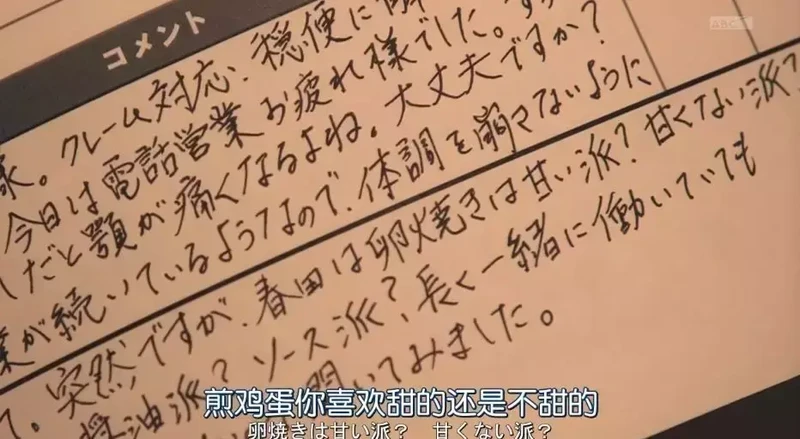 ABCテレビ
コメント
クレーム対応、穏便に
今日は電話営業お疲れ様でした。
だと顎が痛くなるよね。大丈夫ですか?
が続いているようなので、体調を崩さないように
突然ですが、春田は卵焼きは甘い派?甘くない派?
醤油派?ソース派?長く一緒に働いていても
聞いてみました。
煎鸡蛋你喜欢甜的还是不甜的
卵焼きは甘い派? 甘くない派?